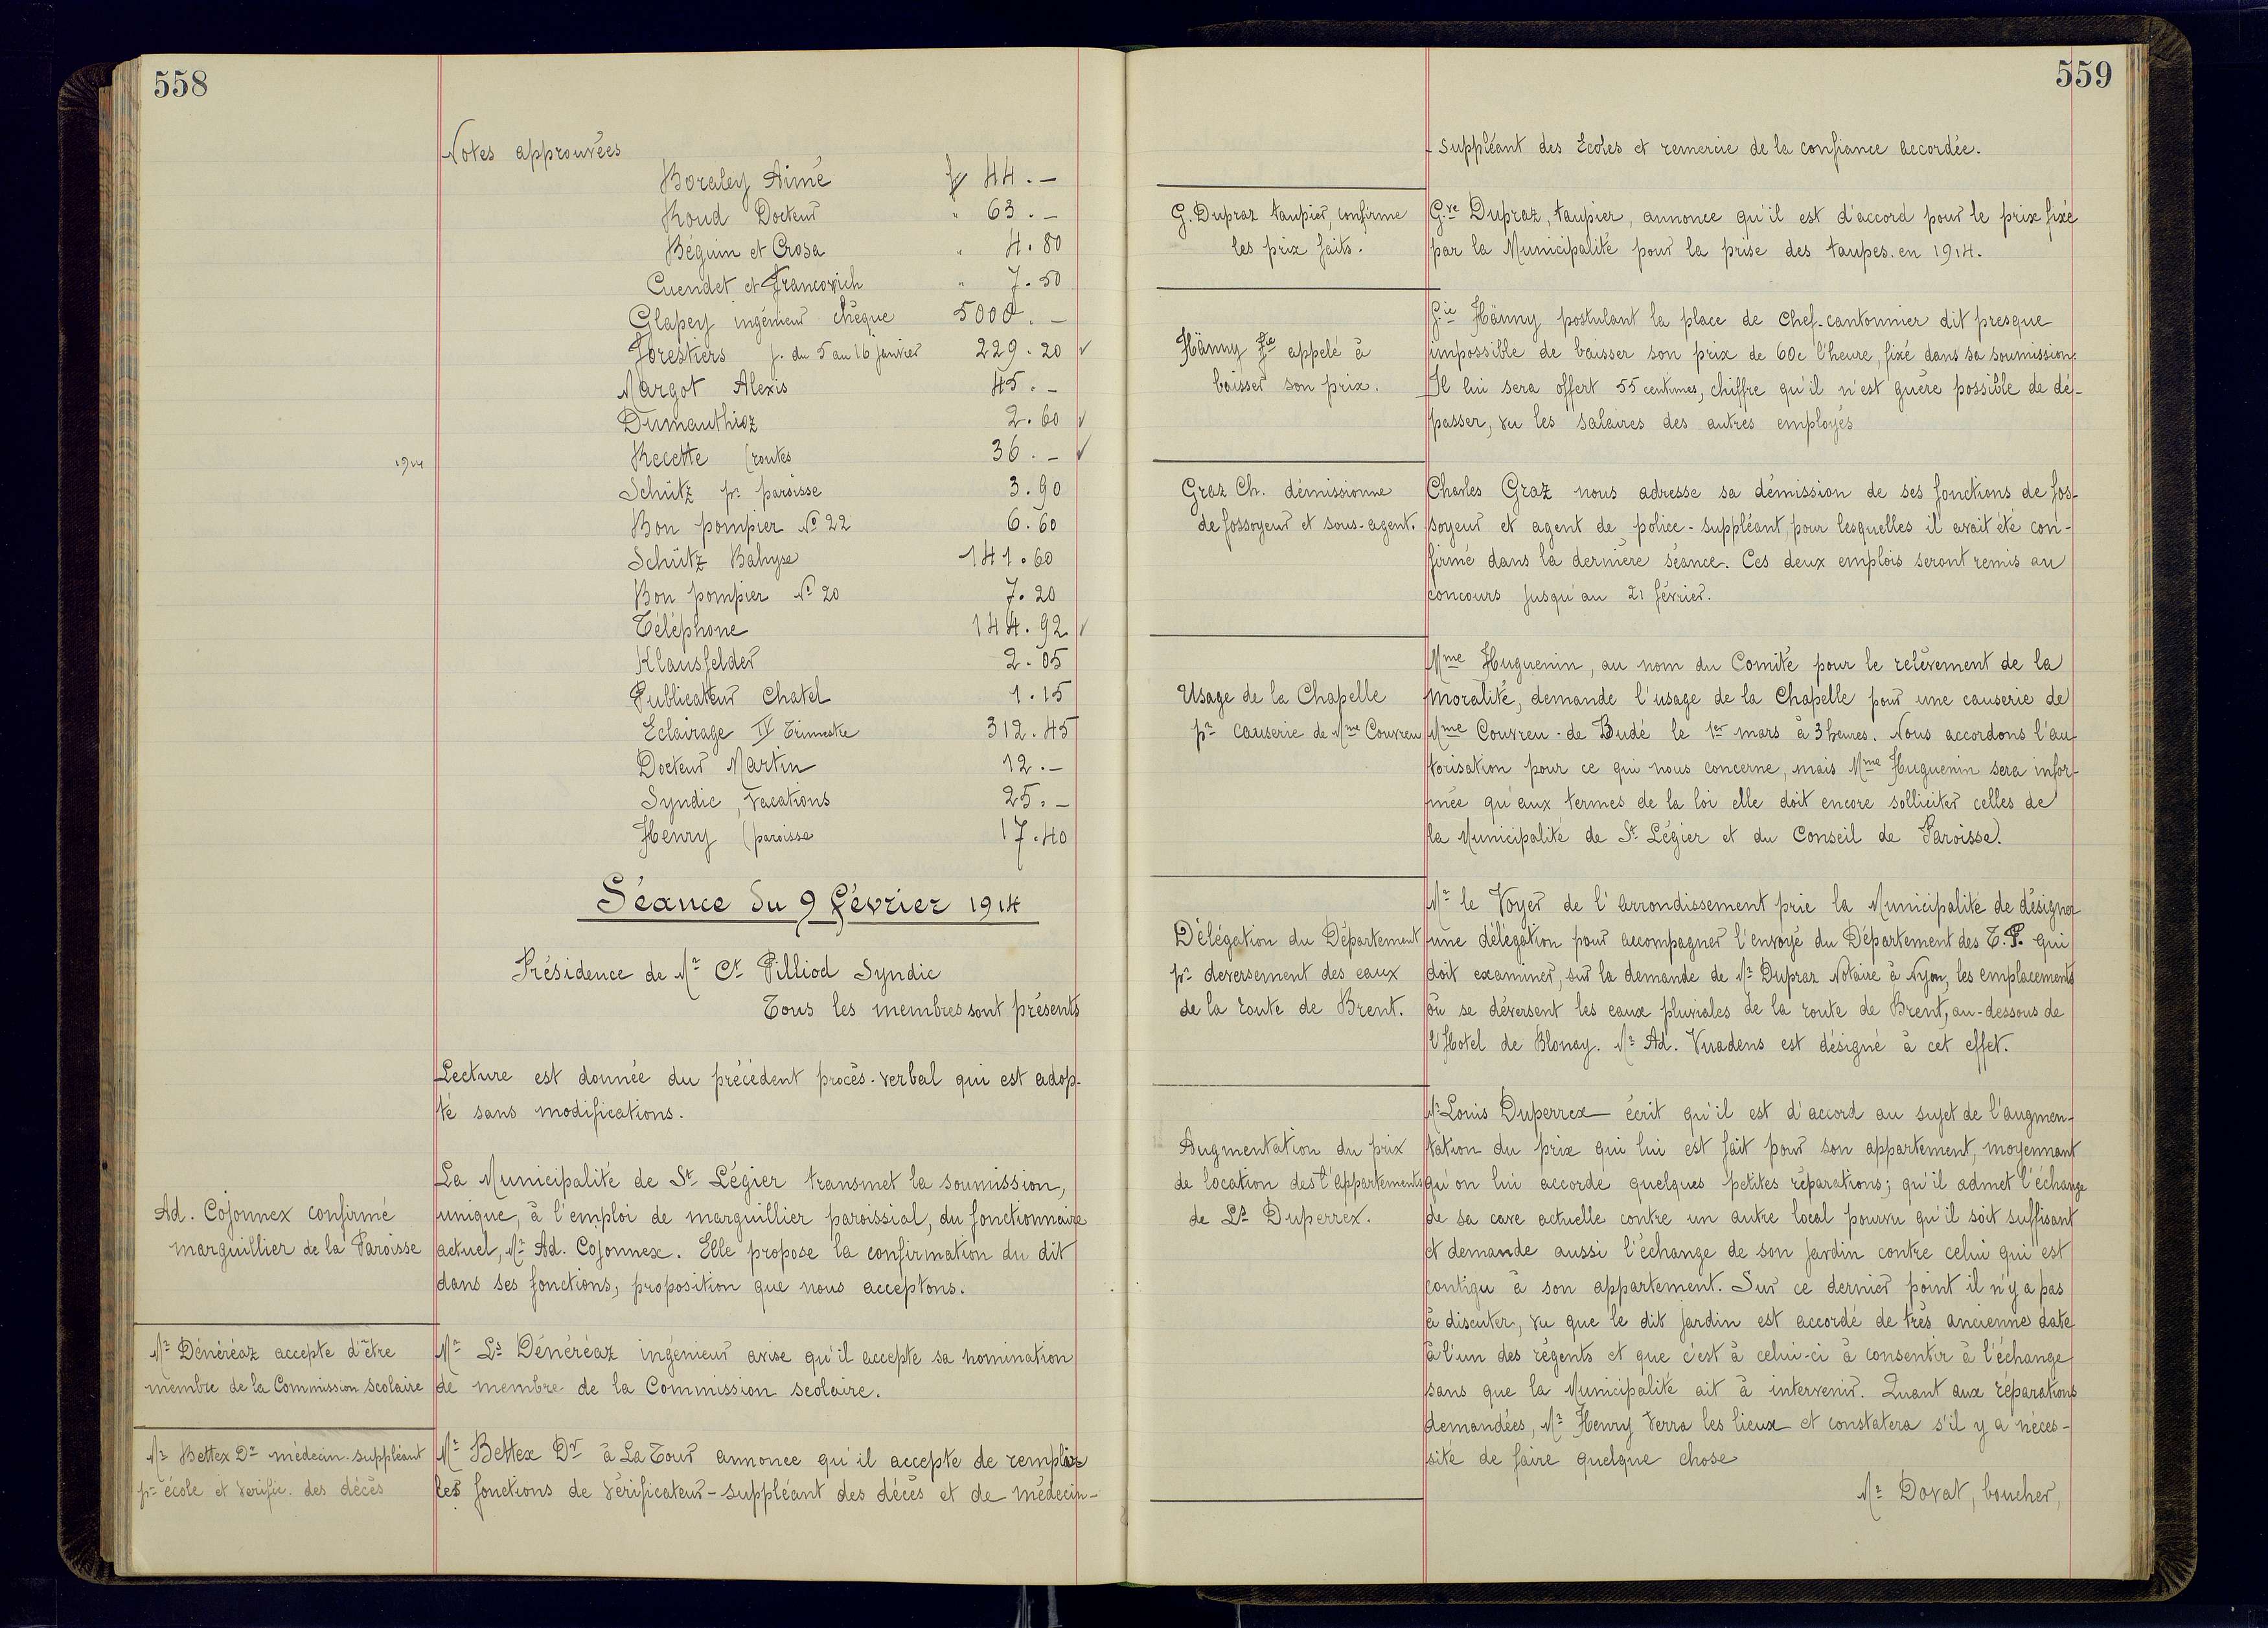 558
Notes approuvées
Boraley Aimé fr 44.-
Roud Docteur " 63.-
Béguin et Crosa " 4.80
Cuendet et Francovich " 7.50
Glapey ingénieur chèque 5000.-
Forestiers j. du 5 au 16 janvier 229.20 ✓
Margot Alexis 45.-
Dumauthioz 2.60 ✓
1914 Recette (routes 36.- ✓
Schütz pr. paroisse 3.90
Bon pompier No 22 6.60
Schütz Bahyse 141.60
Bon pompier No 20 7.20
Téléphone 144.92 ✓
Klausfelder 2.05
Publicateur Chatel 1.15
Eclairage IV Trimestre 312.45
Docteur Martin 12.-
Syndic, vacations 25.-
Henry (paroisse 17.40
Séance du 9 février 1914
Présidence de Mr Ct Pilliod Syndic
Tous les membres sont présents
Lecture est donnée du précédent procès-verbal qui est adop-
té sans modifications.
Ad. Cojonnex confirmé
marguillier de la Paroisse
La Municipalité de St. Légier transmet la soumission,
unique, à l'emploi de marguillier paroissial, du fonctionnaire
actuel, Mr Ad. Cojonnex. Elle propose la confirmation du dit
dans ses fonctions, proposition que nous acceptons.
Mr Dénéréaz accepte d'être
membre de la Commission scolaire
Mr Ls Dénéréaz ingénieur avise qu'il accepte sa nomination
de membre de la Commission scolaire.
Mr Bettex Dr médecin-suppléant
pr école et vérific. des décès
Mr Bettex Dr à La Tour annonce qu'il accepte de remplir
les fonctions de vérificateur-suppléant des décès et de médecin-
559
suppléant des Ecoles et remercie de la confiance accordée.
G. Dupraz taupier, confirme
les prix faits.
Gve Dupraz, taupier, annonce qu'il est d'accord pour le prix fixé
par la Municipalité pour la prise des taupes. en 1914.
Hänny Fie appelé à
baisser son prix.
Fie Hänny postulant la place de Chef-cantonnier dit presque
impossible de baisser son prix de 60c l'heure, fixé dans sa soumission.
Il lui sera offert 55 centimes, chiffre qu'il n'est guère possible de dé-
passer, vu les salaires des autres employés
Graz Ch. démissionne
de fossoyeur et sous-agent.
Charles Graz nous adresse sa démission de ses fonctions de fos-
soyeur et agent de police-suppléant, pour lesquelles il avait été con-
firmé dans la dernière séance. Ces deux emplois seront remis au
concours jusqu'au 21 février.
Usage de la Chapelle
pr causerie de Mme Couvreu
Mme Huguenin, au nom du Comité pour le relèvement de la
moralité, demande l'usage de la Chapelle pour une causerie de
Mme Couvreu-de Budé le 1er mars à 3 heures. Nous accordons l'au-
torisation pour ce qui nous concerne, mais Mme Huguenin sera infor-
mée qu'aux termes de la loi elle doit encore solliciter celles de
la Municipalité de St. Légier et du Conseil de Paroisse.
Délégation du Département
pr deversement des eaux
de la route de Brent.
Mr le Voyer de l'arrondissement prie la Municipalité de désigner
une délégation pour accompagner l'envoyé du Département des T.P. qui
doit examiner, sur la demande de Mr Dupraz Notaire à Nyon, les emplacements
où se déversent les eaux pluviales de la route de Brent, au-dessous de
l'Hotel de Blonay. Mr Ad. Vuadens est désigné à cet effet.
Augmentation du prix
de location des l'appartements
de Ls Duperrex.
Mr Louis Duperrex écrit qu'il est d'accord au sujet de l'augmen-
tation du prix qui lui est fait pour son appartement, moyennant
qu'on lui accorde quelques petites réparations; qu'il admet l'échange
de sa cave actuelle contre un autre local pourvu qu'il soit suffisant
et demande aussi l'échange de son jardin contre celui qui est
contigu à son appartement. Sur ce dernier point il n'y a pas
à discuter, vu que le dit jardin est accordé de très ancienne date
à l'un des régents et que c'est à celui-ci à consentir à l'échange
sans que la Municipalité ait à intervenir. Quant aux réparations
demandées, Mr Henry verra les lieux et constatera s'il y a néces-
sité de faire quelque chose
Mr Dovat, boucher,